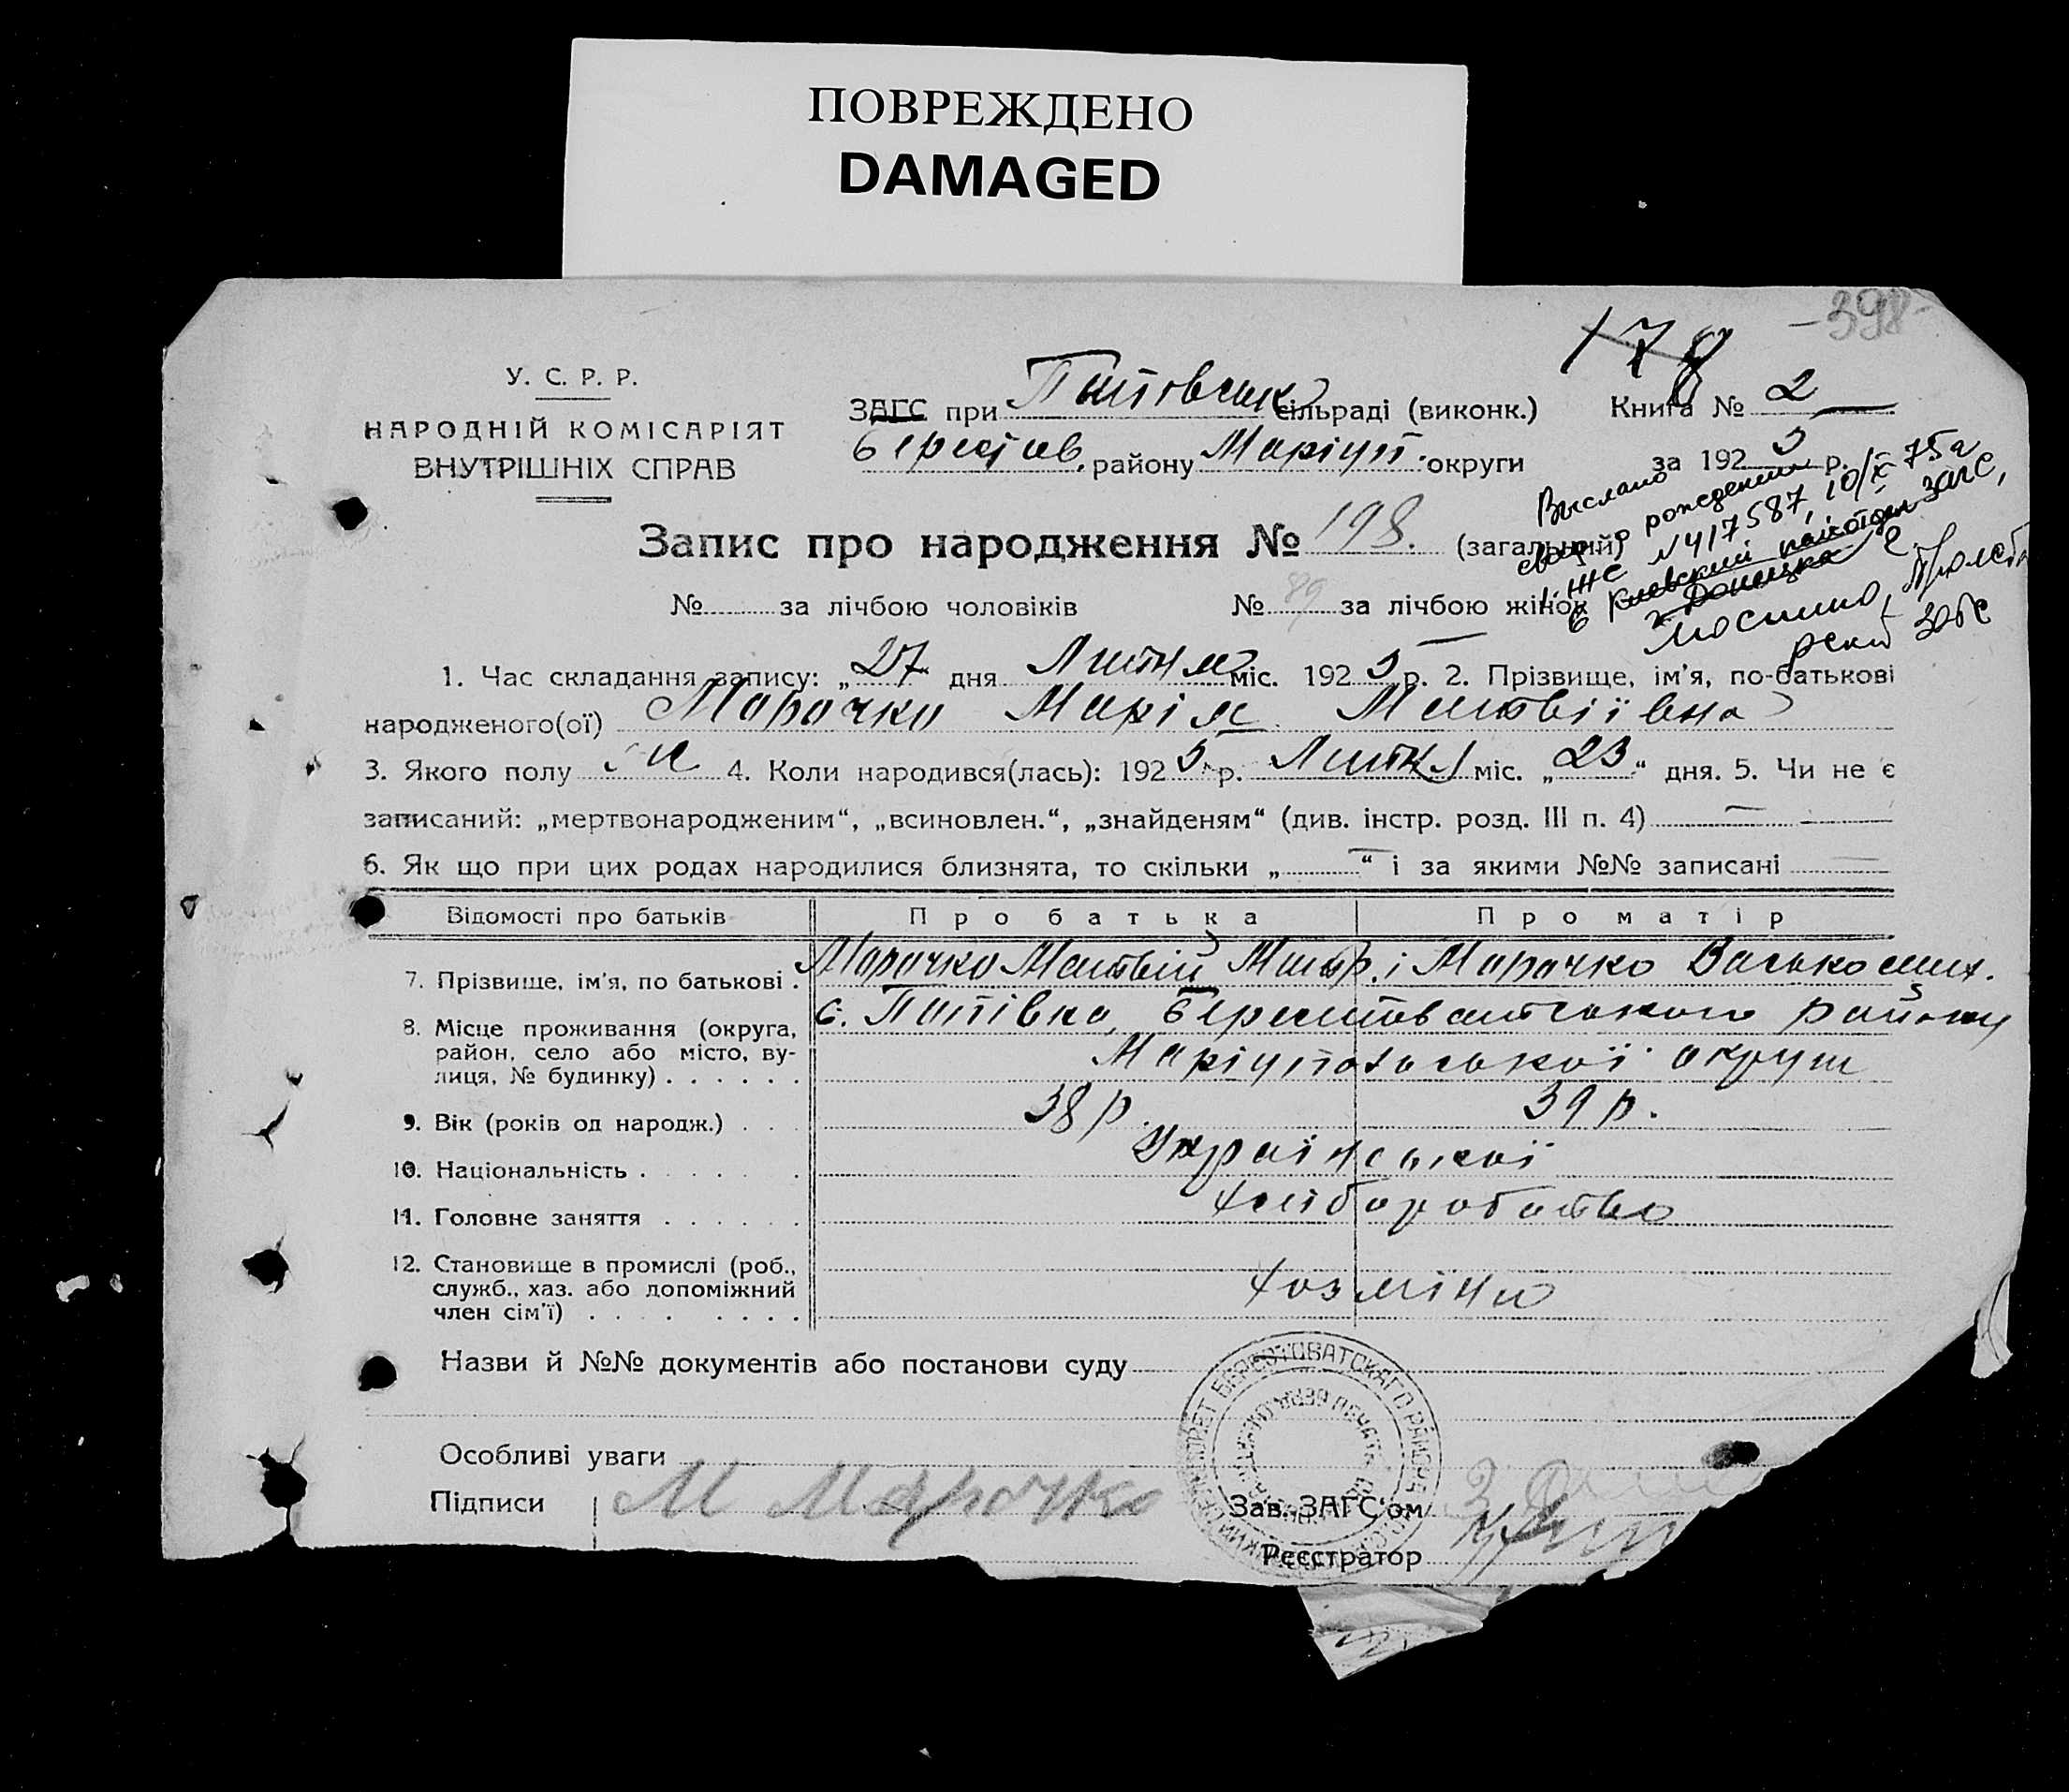 ПОВРЕЖДЕНО
DAMAGED
-398-
178
У. С. Р. Р.
НАРОДНІЙ КОМІСАРІЯТ
ВНУТРІШНІХ СПРАВ
ЗАГС при Попівськ сільраді (виконк.)
Берестов. району Маріуп. округи
Книга № 2
за 1925 р.
Выслано
свид. о рождении
І-ЖС №417587, 10/X 75г
в Киевский райотдел ЗАГС,
г. Донецка
ЗАГС
Запис про народження № 198. (загальний)
№ за лічбою чоловіків № 89 за лічбою жінок
1. Час складання запису: „27" дня Липня міс. 1925 р. 2. Прізвище, ім'я, по-батькові
народженого(ої) Марочко Марія Матвіївна
3. Якого полу ж 4. Коли народився(лась): 1925 р. Липня міс. „23" дня. 5. Чи не є
записаний: „мертвонародженим", „всиновлен.", „знайденям" (див. інстр. розд. III п. 4) —
6. Як що при цих родах народилися близнята, то скільки „—" і за якими №№ записані —
Відомості про батьків Про батька Про матір
7. Прізвище, ім'я, по батькові . Марочко Матвій Митр. і Марочко
8. Місце проживання (округа, район, село або місто, ву-
лиця, № будинку) . . . . . . с. Попівка, Берестоватського району
Маріупольської округи
9. Вік (років од народж.) . . . 38 р. 39 р.
10. Національність . . . . . Української
11. Головне заняття . . . . . . хліборобство
12. Становище в промислі (роб.,
служб., хаз. або допоміжний
член сім'ї) . . . . . . . . хазяїни
Назви й №№ документів або постанови суду
Особливі уваги
Підписи М Марочко
Зав. ЗАГС'ом
Реєстратор